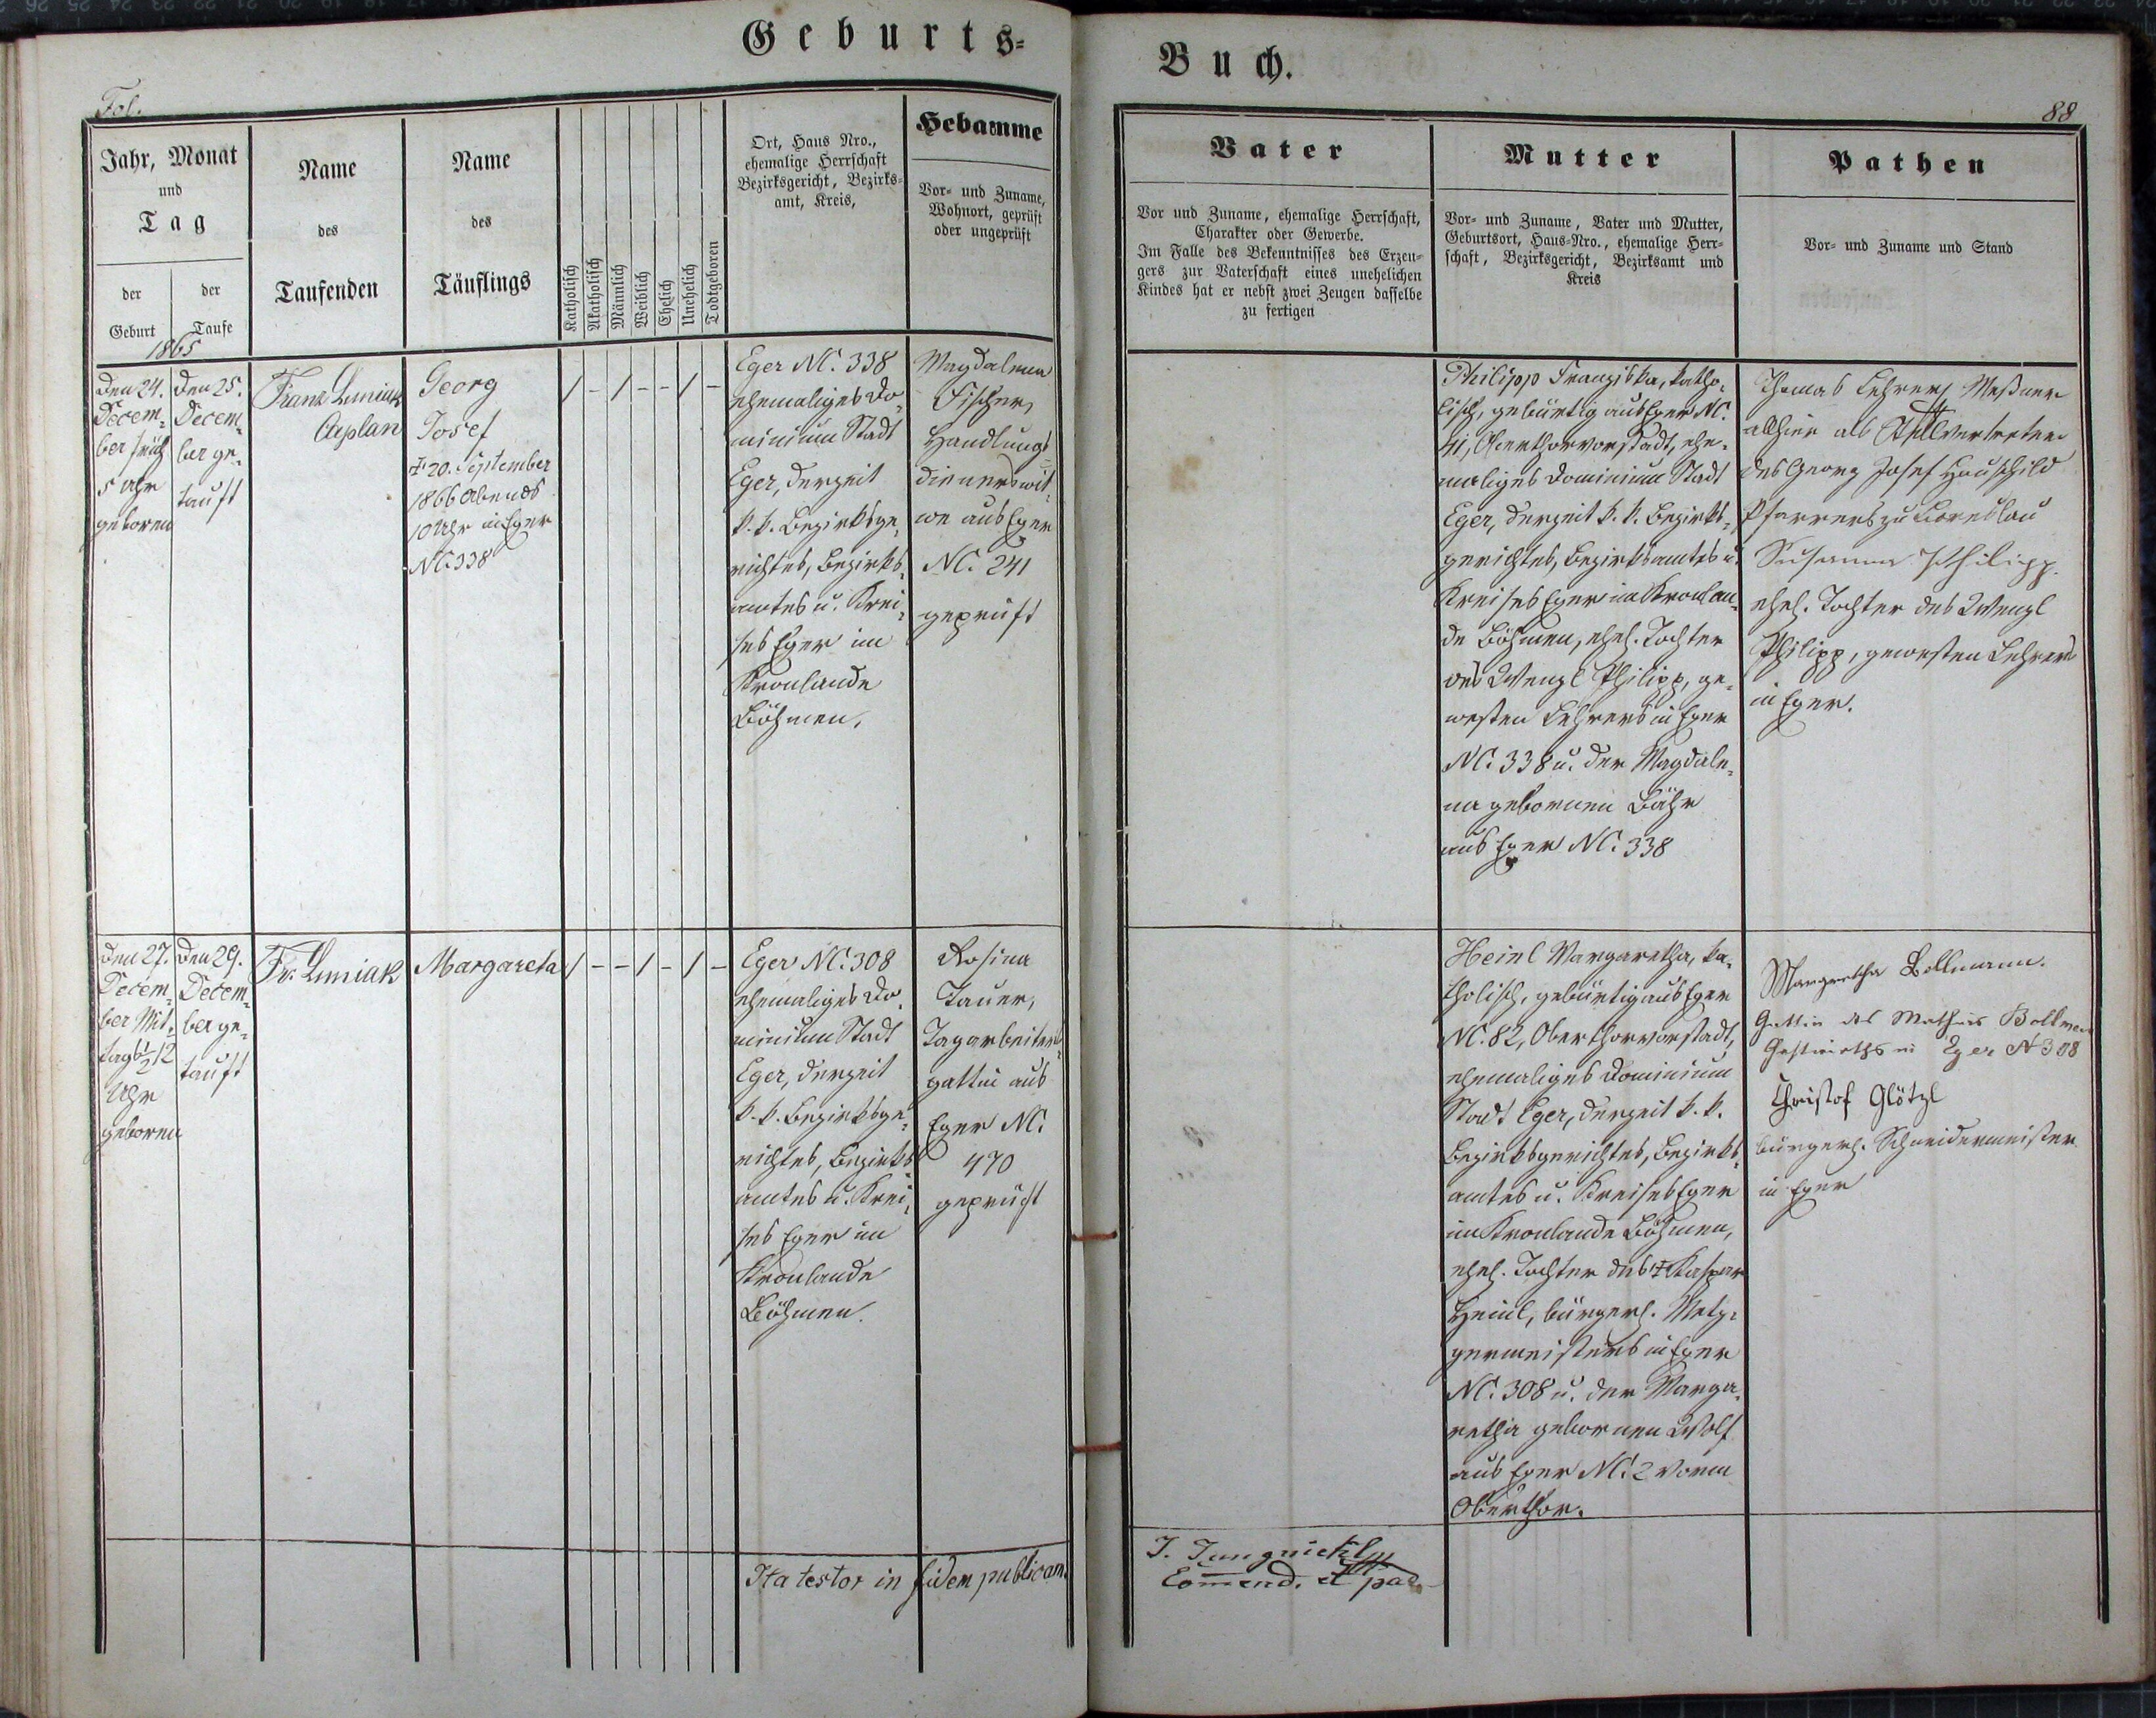 Geburts-
Buch.
Fol.
88
Jahr, Monat
und
Tag
der
Geburt
der
Taufe
1865
Name
des
Taufenden
Name
des
Täuflings
Katholisch
Akatholisch
Männlich
Weiblich
Ehelich
Unehelich
Todtgeboren
Ort, Haus Nro.,
ehemalige Herrschaft
Bezirksgericht, Bezirks-
amt, Kreis,
Hebamme
Vor- und Zuname,
Wohnort, geprüft
oder ungeprüft
Vater
Vor und Zuname, ehemalige Herrschaft,
Charakter oder Gewerbe.
Im Falle des Bekenntnisses des Erzeu-
gers zur Vaterschaft eines unehelichen
Kindes hat er nebst zwei Zeugen dasselbe
zu fertigen
Mutter
Vor- und Zuname, Vater und Mutter,
Geburtsort, Haus-Nro., ehemalige Herr-
schaft, Bezirksgericht, Bezirksamt und
Kreis
Pathen
Vor- und Zuname und Stand
Den 24.
Decem-
ber früh
5 Uhr
geboren
Den 25.
Decem-
ber ge-
tauft
Franz
Caplan
Georg
Josef
† 20. September
1866 Abends
10 Uhr in Eger
NC. 338
/ - / - - / -
Eger NC. 338
ehemaliges Do-
minium Stadt
Eger, derzeit
k. k. Bezirksge-
richtes, Bezirks-
amtes u. Krei-
ses Eger im
Kronlande
Böhmen.
Magdalena
Fischer,
Handlungs-
dienerswit-
we aus Eger
NC. 241
geprüft
Philipp Franziska, katho-
lisch, gebürtig aus Eger NC.
41, Oberthorvorstadt, ehe-
maliges Dominium Stadt
Eger, derzeit k. k. Bezirks-
gerichtes, Bezirksamtes u.
Kreises Eger im Kronlan-
de Böhmen, ehel. Tochter
des Wenzl Philipp, ge-
westen Lehrers in Eger
NC. 338 u. der Magdale-
na gebornen Bähr
aus Eger NC. 338
Thomas Lehrer, Meßner
allhier als Stellvertreter
des Georg Josef Hauschild
Pfarrers zu
Susanna Philipp.
ehel. Tochter des Wenzl
Philipp, gewesten Lehrers
in Eger.
Den 27.
Decem-
ber Mit-
tags 1/2 12
Uhr
geboren
Den 29.
Decem-
ber ge-
tauft
Fr.
Margareta
/ - - / - / -
Eger NC. 308
ehemaliges Do-
minium Stadt
Eger, derzeit
k. k. Bezirksge-
richtes, Bezirks-
amtes u. Krei-
ses Eger im
Kronlande
Böhmen.
Rosina
Tauer,
Tagarbeiters-
gattin aus
Eger NC.
470
geprüft
Heinl Margaretha, ka-
tholisch, gebürtig aus Eger
NC. 82, Oberthorvorstadt,
ehemaliges Dominium
Stadt Eger, derzeit k. k.
Bezirksgerichtes, Bezirks-
amtes u. Kreises Eger
im Kronlande Böhmen,
ehel. Tochter des † Kaspar
Heinl, bürgerl. Metz-
germeisters in Eger
NC. 308 u. der Marga-
retha gebornen Wolf
aus Eger NC. 2 vorm
Oberthor.
Margaretha Bollmann.
Gattin des Mathias
Gastwirths in Eger N 308
Christof Glötzl
bürgerl. Schneidermeister
in Eger
Ita testor in fidem publicam.
J. Jungnickl
Commend. et